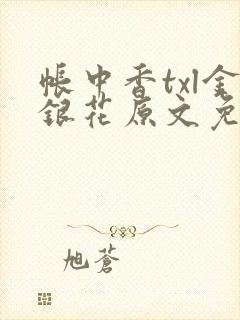 帳中香txl金
銀花原文免
旭蒼